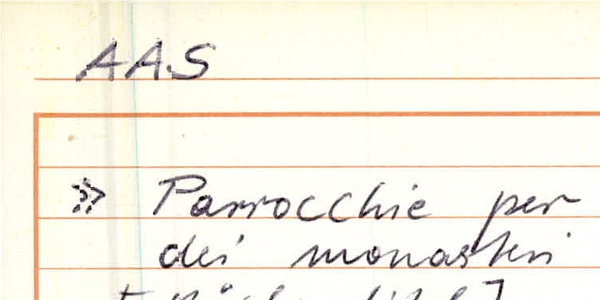 AAS
» Parrocchie per
dei monasteri